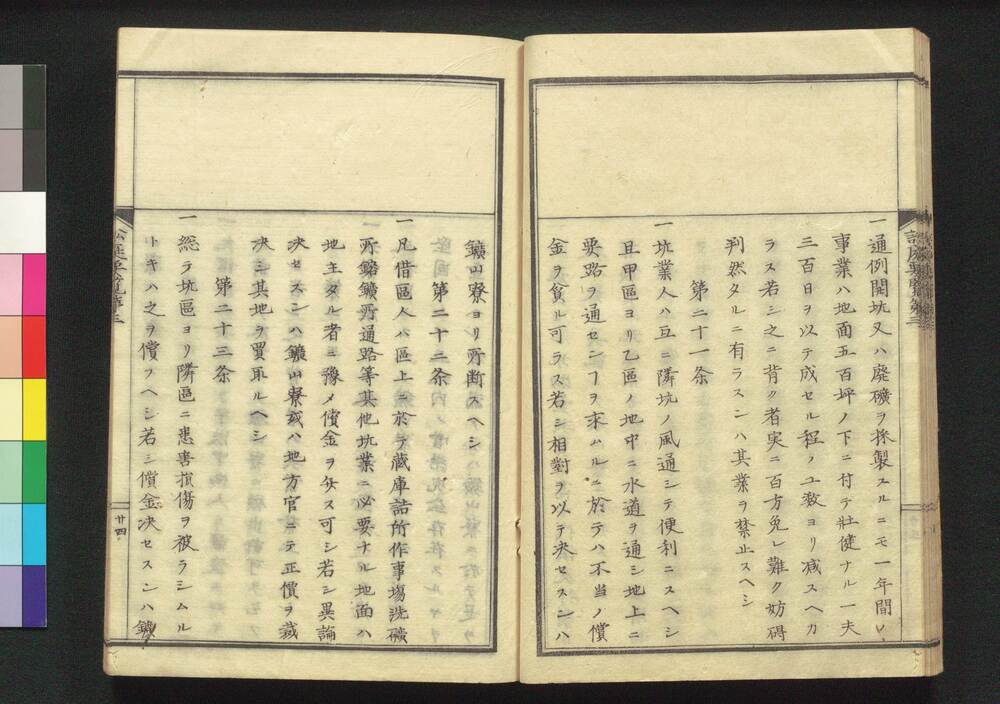 一通例開坑又ハ廃礦ヲ採製スルニモ一年間ノ
事業ハ地面五百坪ノ下ニ付テ壮健ナル一夫
三百日ヲ以テ成セル程ノ工数ヨリ减スヘカ
ラス若シ之ニ背ク者実ニ百方免レ難ク妨碍
判然タルニ有ラスンハ其業ヲ禁止スヘシ
第二十一条
一坑業人ハ互ニ隣坑ノ風通シテ便利ニスヘシ
且甲區ヨリ乙區ノ地中ニ水道ヲ通シ地上ニ
要路ヲ通センヿヲ求ムルニ於テハ不当ノ償
金ヲ貪ル可ラス若シ相對ヲ以テ决セスンハ
鑛山寮ヨリ所断スヘシ
第二十二条
一凡借區人ハ區上ニ於テ蔵庫詰所作事場洗礦
所鎔鑛所通路等其他坑業ニ必要ナル地面ハ
地主タル者ニ豫メ償金ヲ欠ス可シ若シ異論
决セスンハ鑛山寮或ハ地方官ニテ正價ヲ裁
决シ其地ヲ買取ルヘシ
第二十三条
一総テ坑區ヨリ隣區ニ患害損傷ヲ被ラシムル
トキハ之ヲ償フヘシ若シ償金决セスンハ鑛
廿四